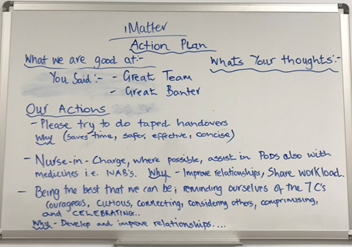 iMatter
Action Plan
What we are good at:-
What's Your thoughts:-
You Said:- - Great Team
- Great Banter
Our Actions
- Please try to do taped handovers
Why (saves time, safer, effective, concise)
- Nurse-in-Charge, where possible, assist in PODs also with
medicines i.e. NAB's. Why - Improve relationships, Share workload.
- Being the best that we can be; reminding ourselves of the 7 C's
(courageous, curious, connecting, considering others, comprimising,
and "CELEBRATING..
Why - Develop and improve relationships....